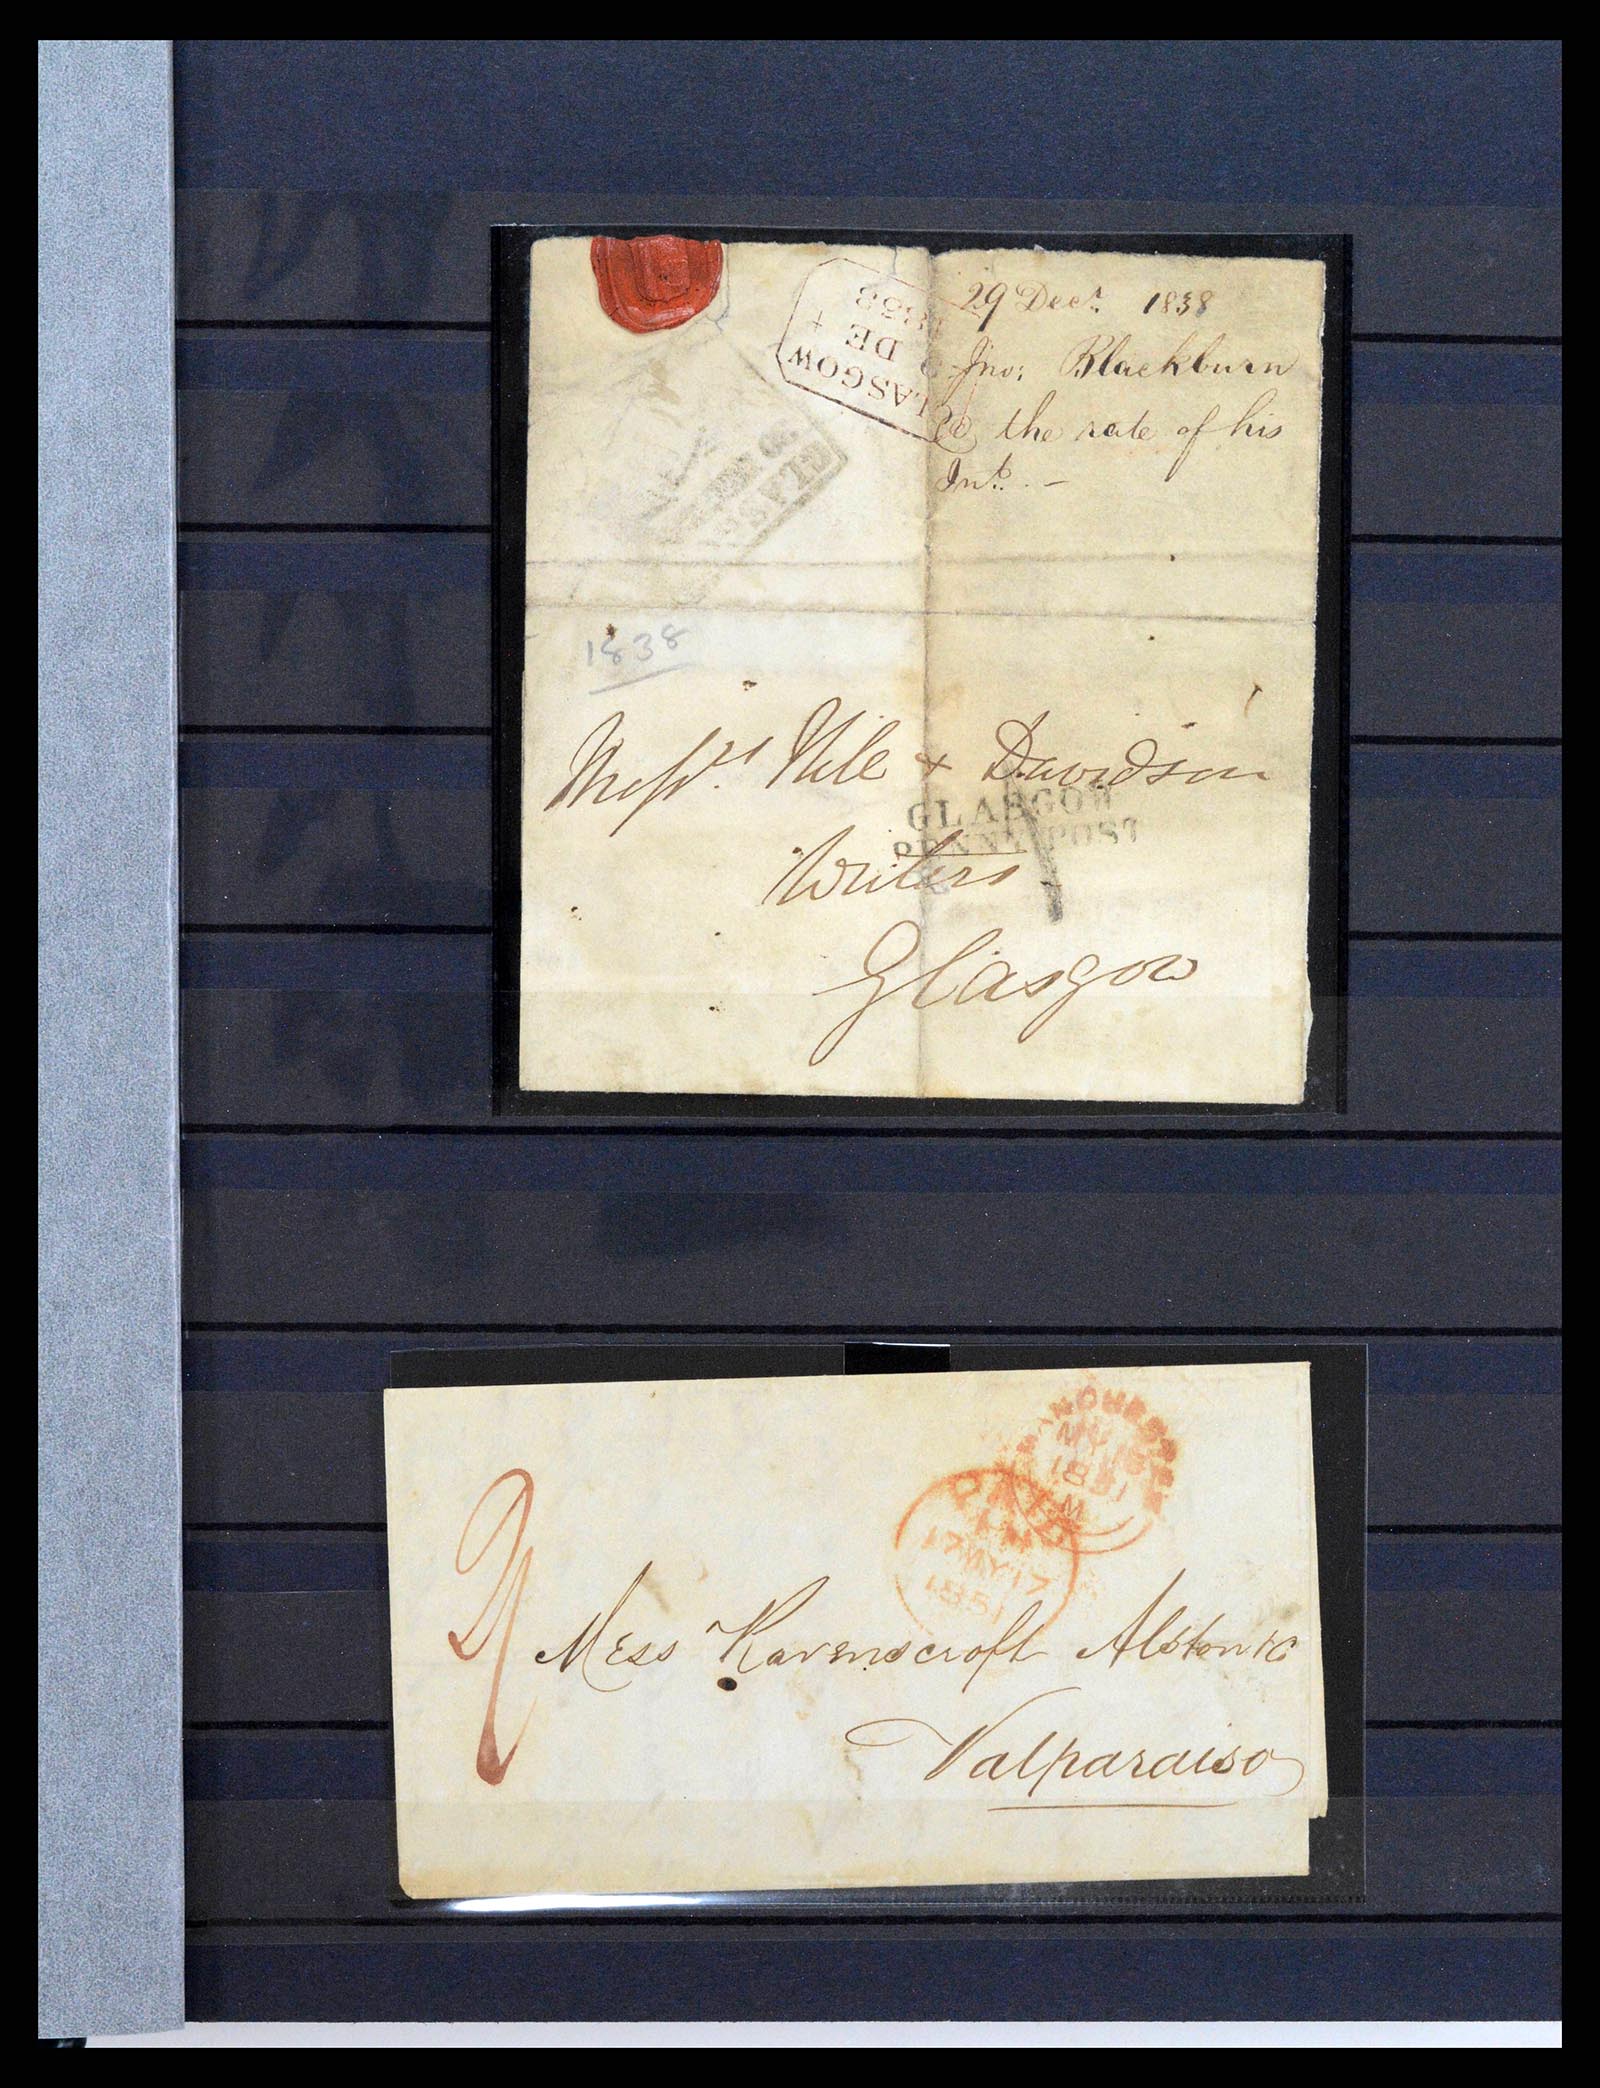 GLASGOW
DE
1838
29 Decr. 1838
Jno: Blackburn
the rate of his
Int. -
1838
Messrs. Hill & Davidson
GLASGOW
PENNY POST
Writers
Glasgow
MANCHESTER
MY 16
1851
M
PAID
17 MY 17
1851
2/
Mess Ravenscroft Alston & Co
Valparaiso